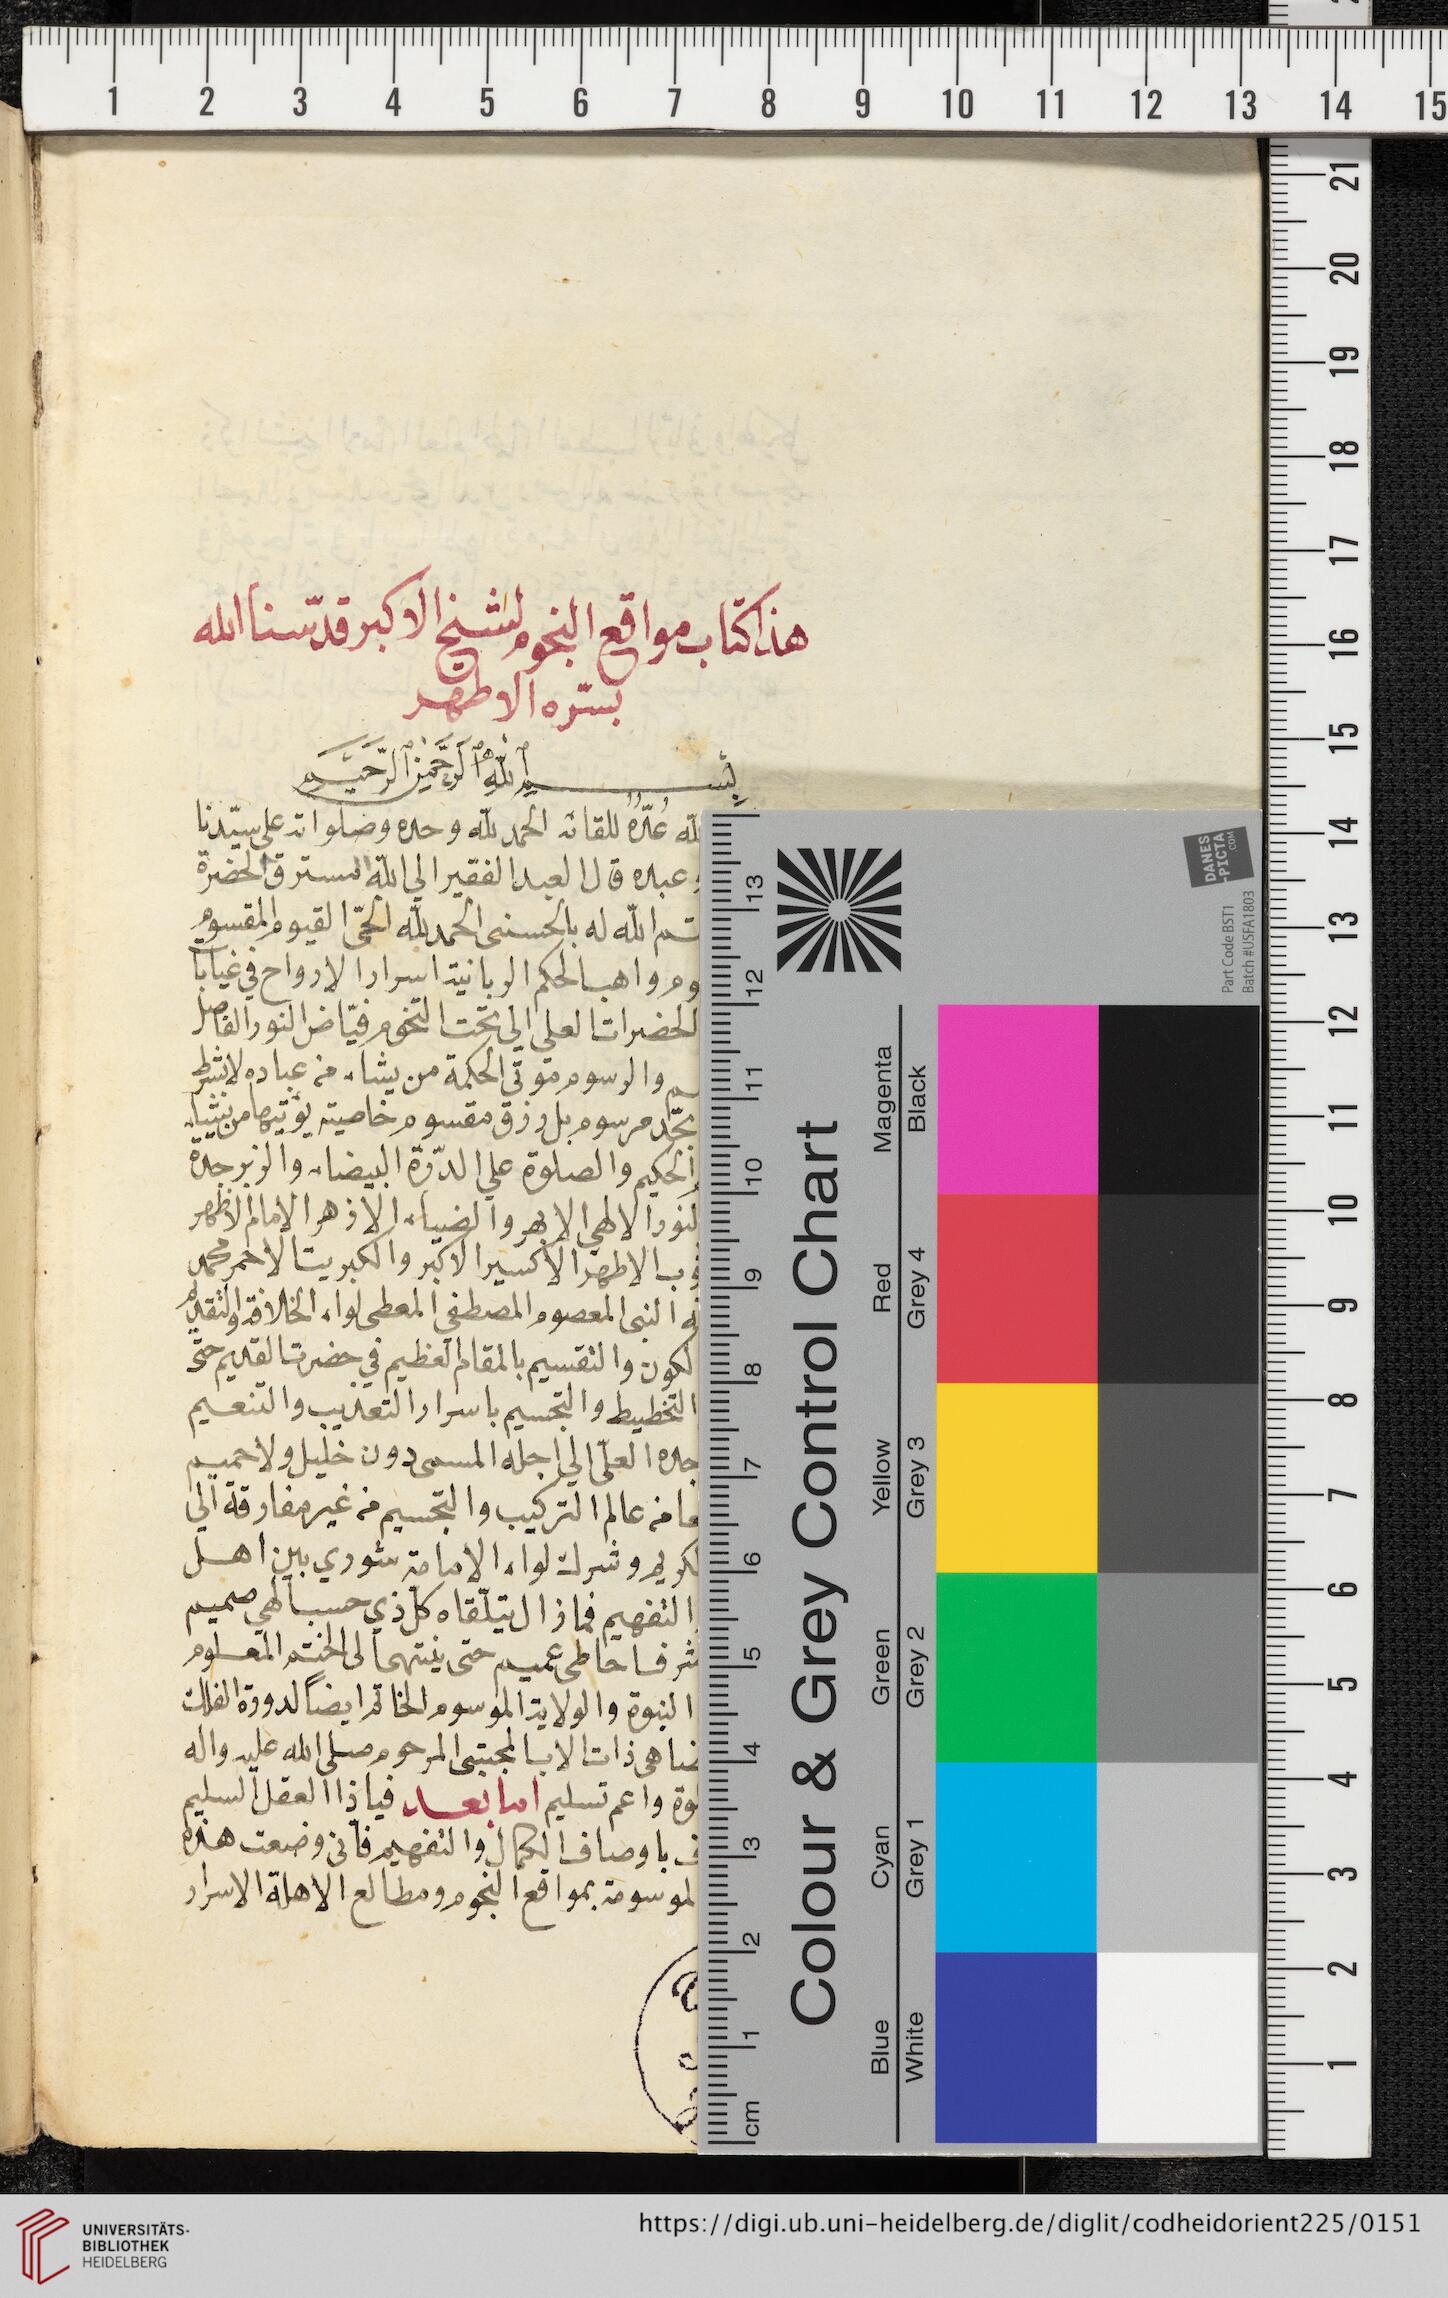 هذا كتاب مواقع النجوم لشيخ الاكبر قدّسنا الله
بسرّه الاطهر
بسم الله الرحمن الرحيم
لله عدّة للقائه الحمد لله وحده وصلواته على سيّدنا
وعبده قال العبد الفقير الي الله المسترق الحضرة
ختم الله له بالحسنى الحمد لله الحيّ القيوم المقسوم
وم واهب الحكم الربانية اسرار الارواح في غيابا
الحضرات العلي الي تحت التخوم فيّاض النور الفاصل
والرسوم موتي الحكمة من يشاء من عباده لا بشرط
بحّد مرسوم بل رزق مقسوم خاصيته يؤتيها من يشاء
الحكيم والصلوة علي الدّرة البيضاء والزبرجدة
لنور الالهي الابهر والضياء الازهر الامام الاظهر
وب الاطهر الاكسير الاكبر والكبريت الاحمر محمد
النبي المعصوم المصطفي المعطي لواء الخلافة والتقديم
لكون والتقسيم بالمقام العظيم في حضرت القديم حتّى
التخطيط والتجسيم باسرار التعذيب والتنعيم
جده العلّى الي اجله المسمى دون خليل ولا حميم
من عالم التركيب والتجسيم من غير مفارقة الي
لكريم وشرك لواء الامامة شوري بين اهل
التفهيم فماذا ل يتلّقاه كلّ ذي حسب الهي صميم
شرف احاطي عميم حتى ينتهي الى الختم المعلوم
النبوة والولاية الموسوم الخاتم ايضاً لدورة الفلك
ضاهى ذات الاب المجتبى المرحوم صلى الله عليه واله
لوة واعم تسليم اما بعد فياذا العقل السليم
ف باوصاف الكمال والتفهيم فاني وضعت هذه
لموسومة بمواقع النجوم ومطالع الاهلة الاسرار
1 2 3 4 5 6 7 8 9 10 11 12 13 14 15
21
20
19
18
17
16
15
14
13
12
11
10
9
8
7
6
5
4
3
2
1
13
12
11
10
9
8
7
6
5
4
3
2
1
cm
Colour & Grey Control Chart
Blue Cyan Green Yellow Red Magenta
White Grey 1 Grey 2 Grey 3 Grey 4 Black
DANES
-PICTA
.COM
Part Code BST1
Batch #USFA1803
UNIVERSITÄTS-
BIBLIOTHEK
HEIDELBERG
https://digi.ub.uni-heidelberg.de/diglit/codheidorient225/0151